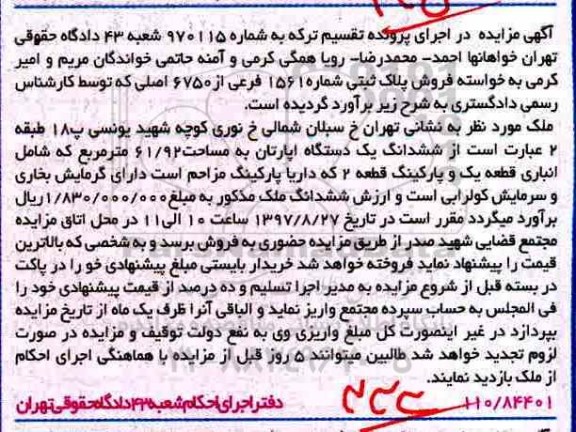 آگهی مزایده در اجرای پرونده تقسیم ترکه به شماره ۹۷۰۱۱۵ شعبه ۴۳ دادگاه حقوقی
تهران خواهانها احمد- محمدرضا- رویا همگی کرمی و آمنه حاتمی خواندگان مریم و امیر
کرمی به خواسته فروش پلاک ثبتی شماره۱۵۶۱ فرعی از۶۷۵۰ اصلی که توسط کارشناس
رسمی دادگستری به شرح زیر برآورد گردیده است.
ملک مورد نظر به نشانی تهران خ سبلان شمالی خ نوری کوچه شهید یونسی پ۱۸ طبقه
۲ عبارت است از ششدانگ یک دستگاه آپارتان به مساحت۶۱/۹۲ مترمربع که شامل
انباری قطعه یک و پارکینگ قطعه ۲ که داریا پارکینگ مزاحم است دارای گرمایش بخاری
و سرمایش کولرآبی است و ارزش ششدانگ ملک مذکور به مبلغ۱/۸۳۰/۰۰۰/۰۰۰ریال
برآورد میگردد مقرر است در تاریخ ۱۳۹۷/۸/۲۷ ساعت ۱۰ الی۱۱ در محل اتاق مزایده
مجتمع قضایی شهید صدر از طریق مزایده حضوری به فروش برسد و به شخصی که بالاترین
قیمت را پیشنهاد نماید فروخته خواهد شد خریدار بایستی مبلغ پیشنهادی خو را در پاکت
در بسته قبل از شروع مزایده به مدیر اجرا تسلیم و ده درصد از قیمت پیشنهادی خود را
فی المجلس به حساب سپرده مجتمع واریز نماید و الباقی آنرا ظرف یک ماه از تاریخ مزایده
بپردازد در غیر اینصورت کل مبلغ واریزی وی به نفع دولت توقیف و مزایده در صورت
لزوم تجدید خواهد شد طالبین میتوانند ۵ روز قبل از مزایده با هماهنگی اجرای احکام
از ملک بازدید نمایند.
۱۱۰/۸۴۴۰۱ دفتر اجرای احکام شعبه ۴۳ دادگاه حقوقی تهران